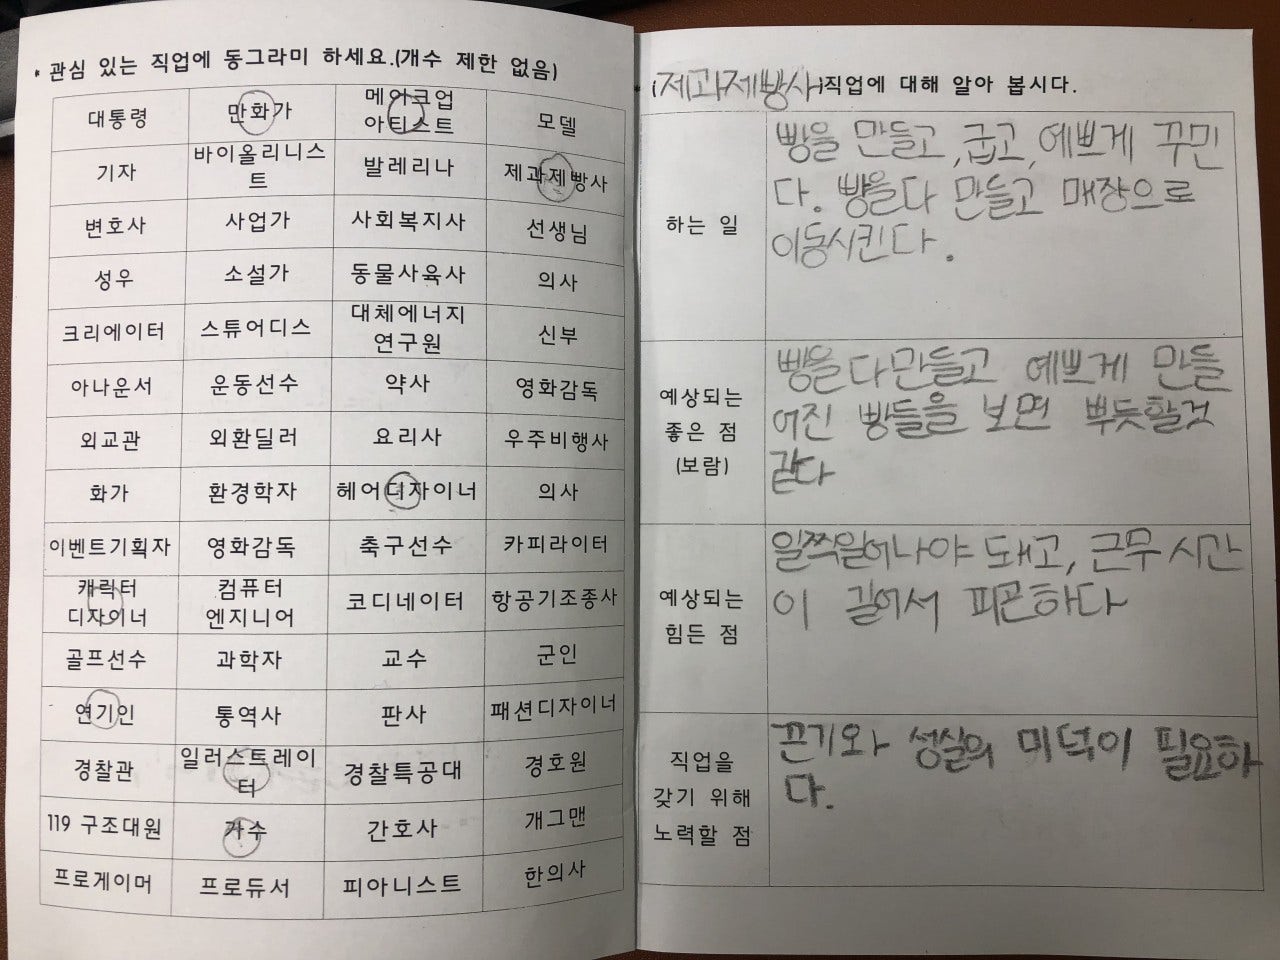 * 관심 있는 직업에 동그라미 하세요.(개수 제한 없음)
대통령 만화가 메이크업 아티스트 모델
기자 바이올리니스트 발레리나 제과제빵사
변호사 사업가 사회복지사 선생님
성우 소설가 동물사육사 의사
크리에이터 스튜어디스 대체에너지 연구원 신부
아나운서 운동선수 약사 영화감독
외교관 외환딜러 요리사 우주비행사
화가 환경학자 헤어디자이너 의사
이벤트기획자 영화감독 축구선수 카피라이터
캐릭터 디자이너 컴퓨터 엔지니어 코디네이터 항공기조종사
골프선수 과학자 교수 군인
연기인 통역사 판사 패션디자이너
경찰관 일러스트레이터 경찰특공대 경호원
119 구조대원 가수 간호사 개그맨
프로게이머 프로듀서 피아니스트 한의사
* (제과제빵사)직업에 대해 알아 봅시다.
하는 일
빵을 만들고, 굽고, 예쁘게 꾸민
다. 빵을다 만들고 매장으로
이동시킨다.
예상되는
좋은 점
(보람)
빵을다만들고 예쁘게 만들
어진 빵들을 보면 뿌듯할것
같다
예상되는
힘든 점
일찍일어나야 돼고, 근무시간
이 길어서 피곤하다
직업을
갖기 위해
노력할 점
끈기와 성실의 미덕이 필요하
다.